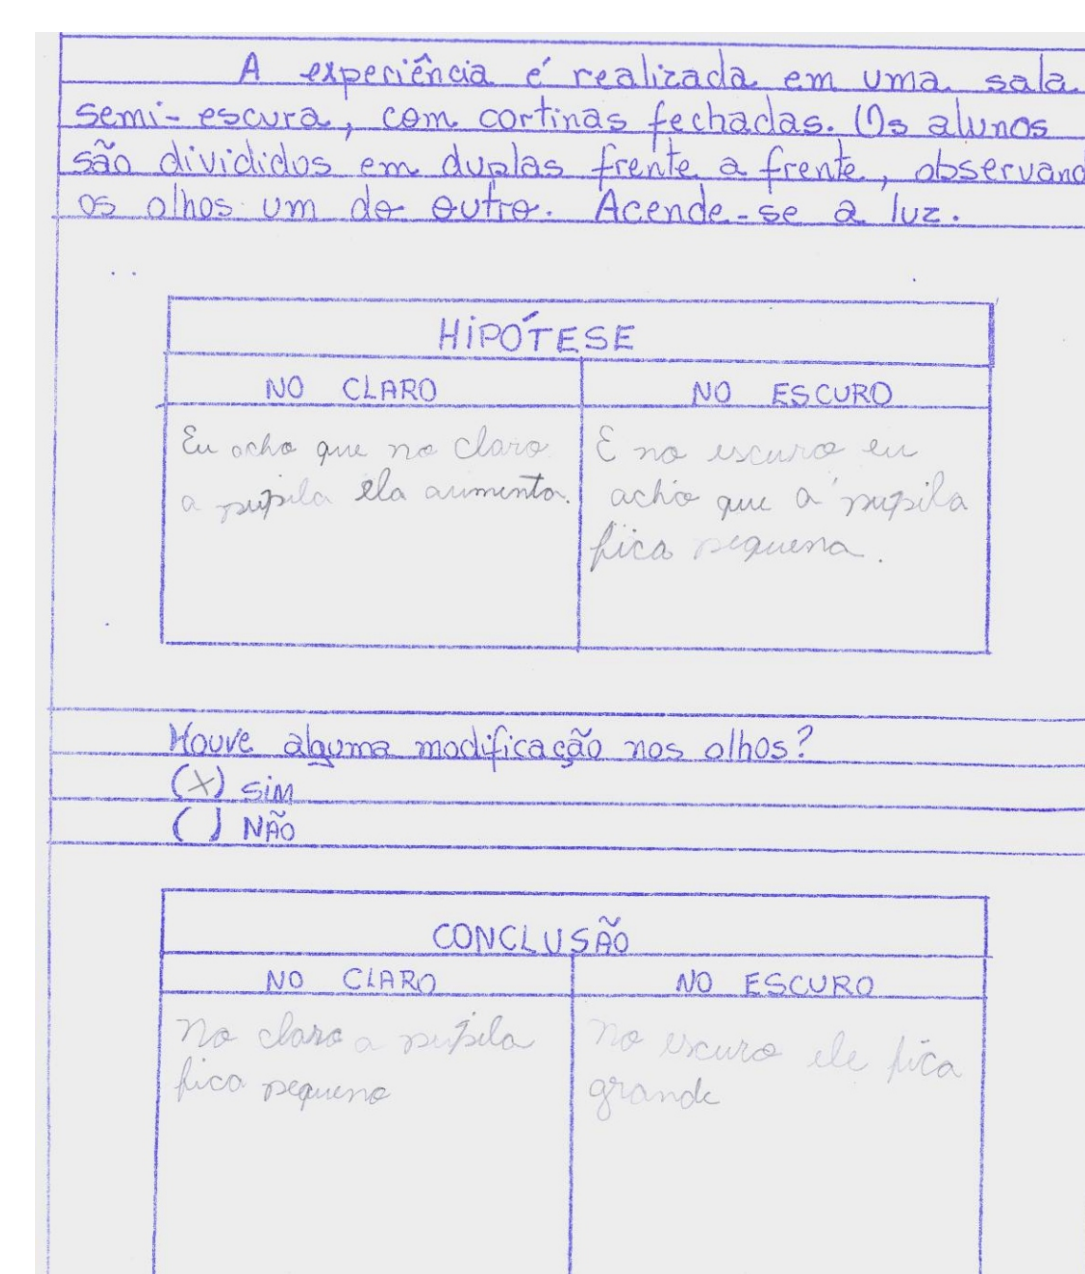 A experiência é realizada em uma sala
semi-escura, com cortinas fechadas. Os alunos
são divididos em duplas frente a frente, observand
os olhos um do outro. Acende-se a luz.
HIPÓTESE
NO CLARO
NO ESCURO
Eu acho que no claro
a pupila ela aumenta.
E no escuro eu
acho que a pupila
fica pequena.
Houve alguma modificação nos olhos?
(X) SIM
( ) NÃO
CONCLUSÃO
NO CLARO
NO ESCURO
No claro a pupila
fica pequena
No escuro ele fica
grande